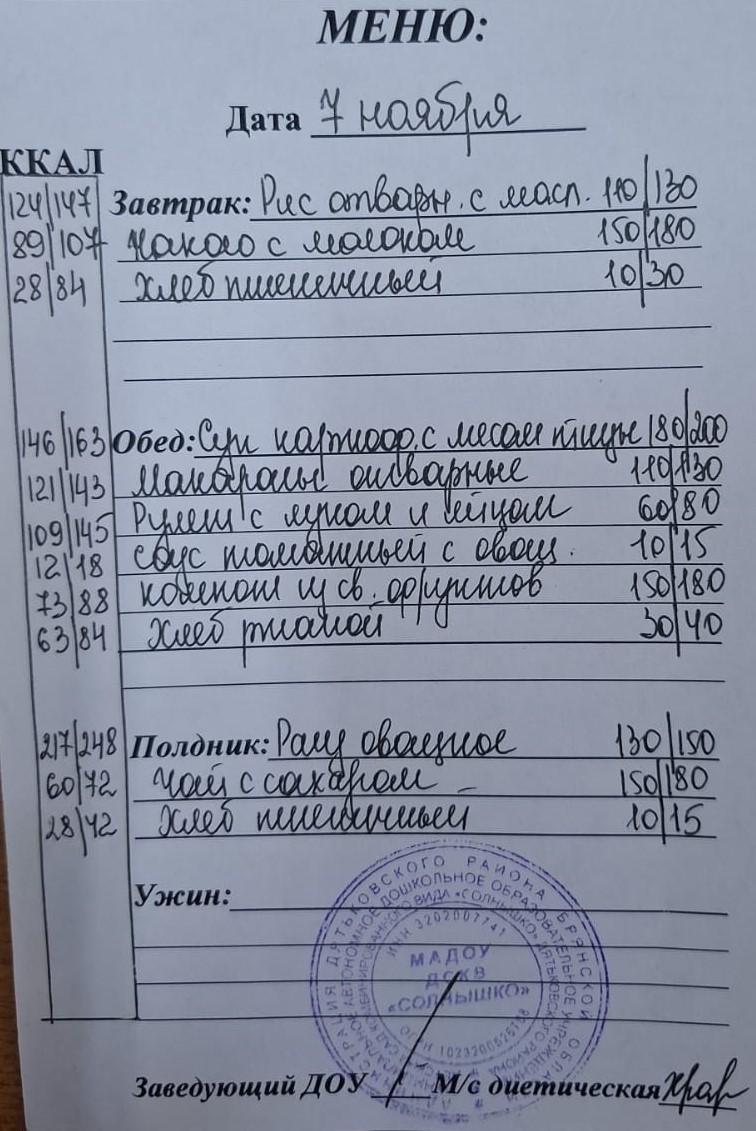 МЕНЮ:
Дата 7 ноября
ККАЛ
124/147 Завтрак: Рис отварн. с масл. 110/130
89/107 Какао с молоком 150/180
28/84 Хлеб пшеничный 10/30
146/163 Обед: Суп картооф. с мясом птицы 180/200
121/143 Макароны отварные 110/130
109/145 Рулет с луком и яйцом 60/80
12/18 соус томатный с овощ. 10/15
73/88 компот из св. фруктов 150/180
63/84 Хлеб ржаной 30/40
217/248 Полдник: Рагу овощное 130/150
60/72 Чай с сахаром 150/180
28/42 Хлеб пшеничный 10/15
Ужин:
ДЯТЬКОВСКОГО РАЙОНА БРЯНСКОЙ
ДОШКОЛЬНОЕ ОБРАЗОВАТЕЛЬНОЕ УЧРЕЖДЕНИЕ
ВИДА «СОЛНЫШКО» ДЯТЬКОВСКОГО РАЙОНА
ИНН 3202007741
МАДОУ
ДСКВ
«СОЛНЫШКО»
ОГРН
Заведующий ДОУ М/с диетическая